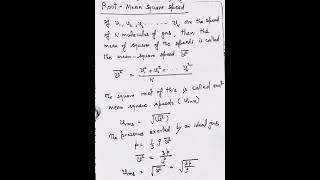 Root - Mean Square Speed
If u₁, u₂, u₃ ------- uₙ are the speed
of N molecules of gas, then the
mean of square of the speeds is called
the mean-square speed u̅²
u̅² = (u₁² + u₂² + ----- uₙ²) / N
The square root of this is called root
mean square speeds (Urms)
Urms = √(u̅²)
The pressure exerted by an ideal gas
p = 1/3 ρ u̅²
u̅² = 3p/ρ
Urms = √u̅² = √(3p/ρ)